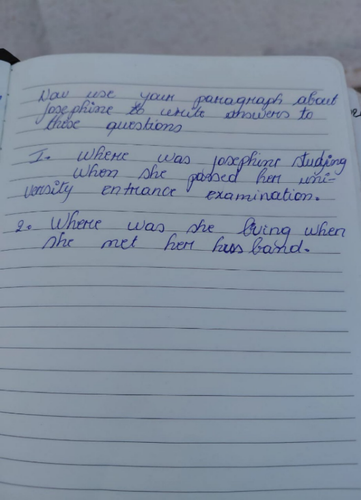 Now use your paragraph about
Josephine to write answers to
these questions
I. Where was Josephine studying
when she passed her uni-
versity entrance examination.
2. Where was she living when
she met her husband.